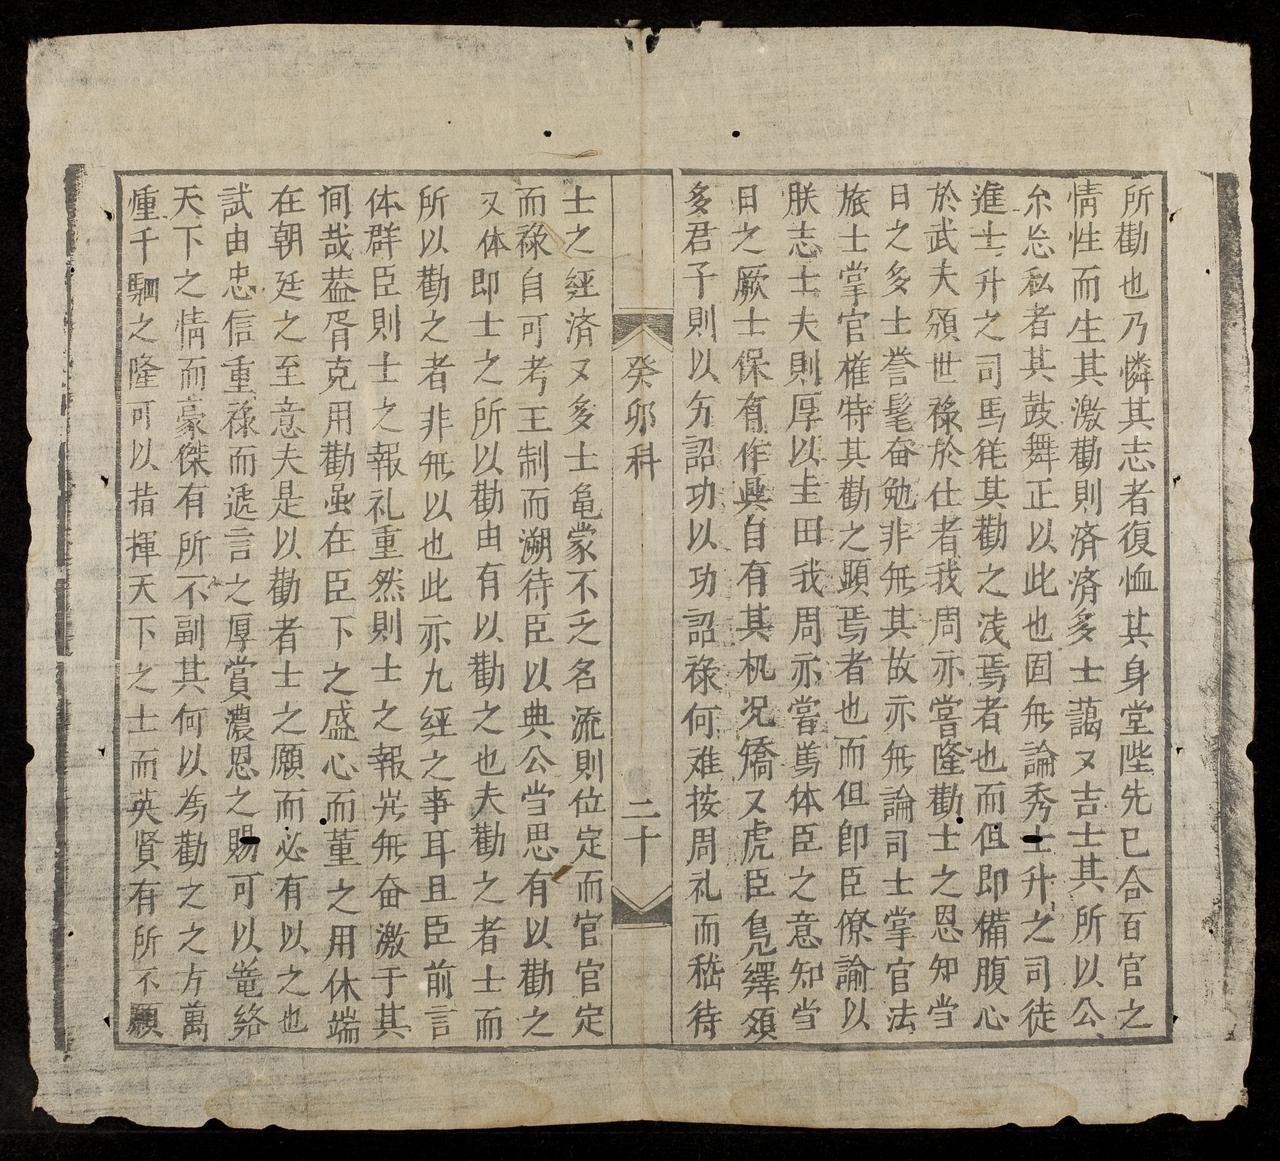 所勸也乃憐其志者復恤其身堂陛先已合百官之
情性而生其激勸則済済多士藹又吉士其所以公
尒忘私者其鼓舞正以此也固無論秀士升之司徒
進士升之司馬徒其勸之浅焉者也而但即備腹心
於武夫頒世禄於仕者我周亦嘗隆勸士之恩知当
日之多士誉髦奋勉非無其故亦無論司士掌官法
旅士掌官榷特其勸之顕焉者也而但即臣僚論以
朕志士夫則厚以圭田我周亦嘗篤体臣之意知当
日之厥士保有作興自有其机况矯又虎臣鳧繹頌
多君子則以匆詔功以功詔禄何难按周礼而嵇待
癸卯科
二十
士之經済又多士黾蒙不乏名流則位定而官官定
而禄自可考王制而溯待臣以典公当思有以勸之
又体即士之所以勸由有以勸之也夫勸之者士而
所以勸之者非無以也此亦九經之事耳且臣前言
体群臣則士之報礼重然則士之報岂無奋激于其
间哉葢胥克用勸虽在臣下之盛心而董之用休端
在朝廷之至意夫是以勸者士之願而必有以之也
試由忠信重禄而逓言之厚賞濃恩之賜可以篭絡
天下之情而豪傑有所不副其何以為勸之之方萬
鍾千駟之隆可以指揮天下之士而英賢有所不願